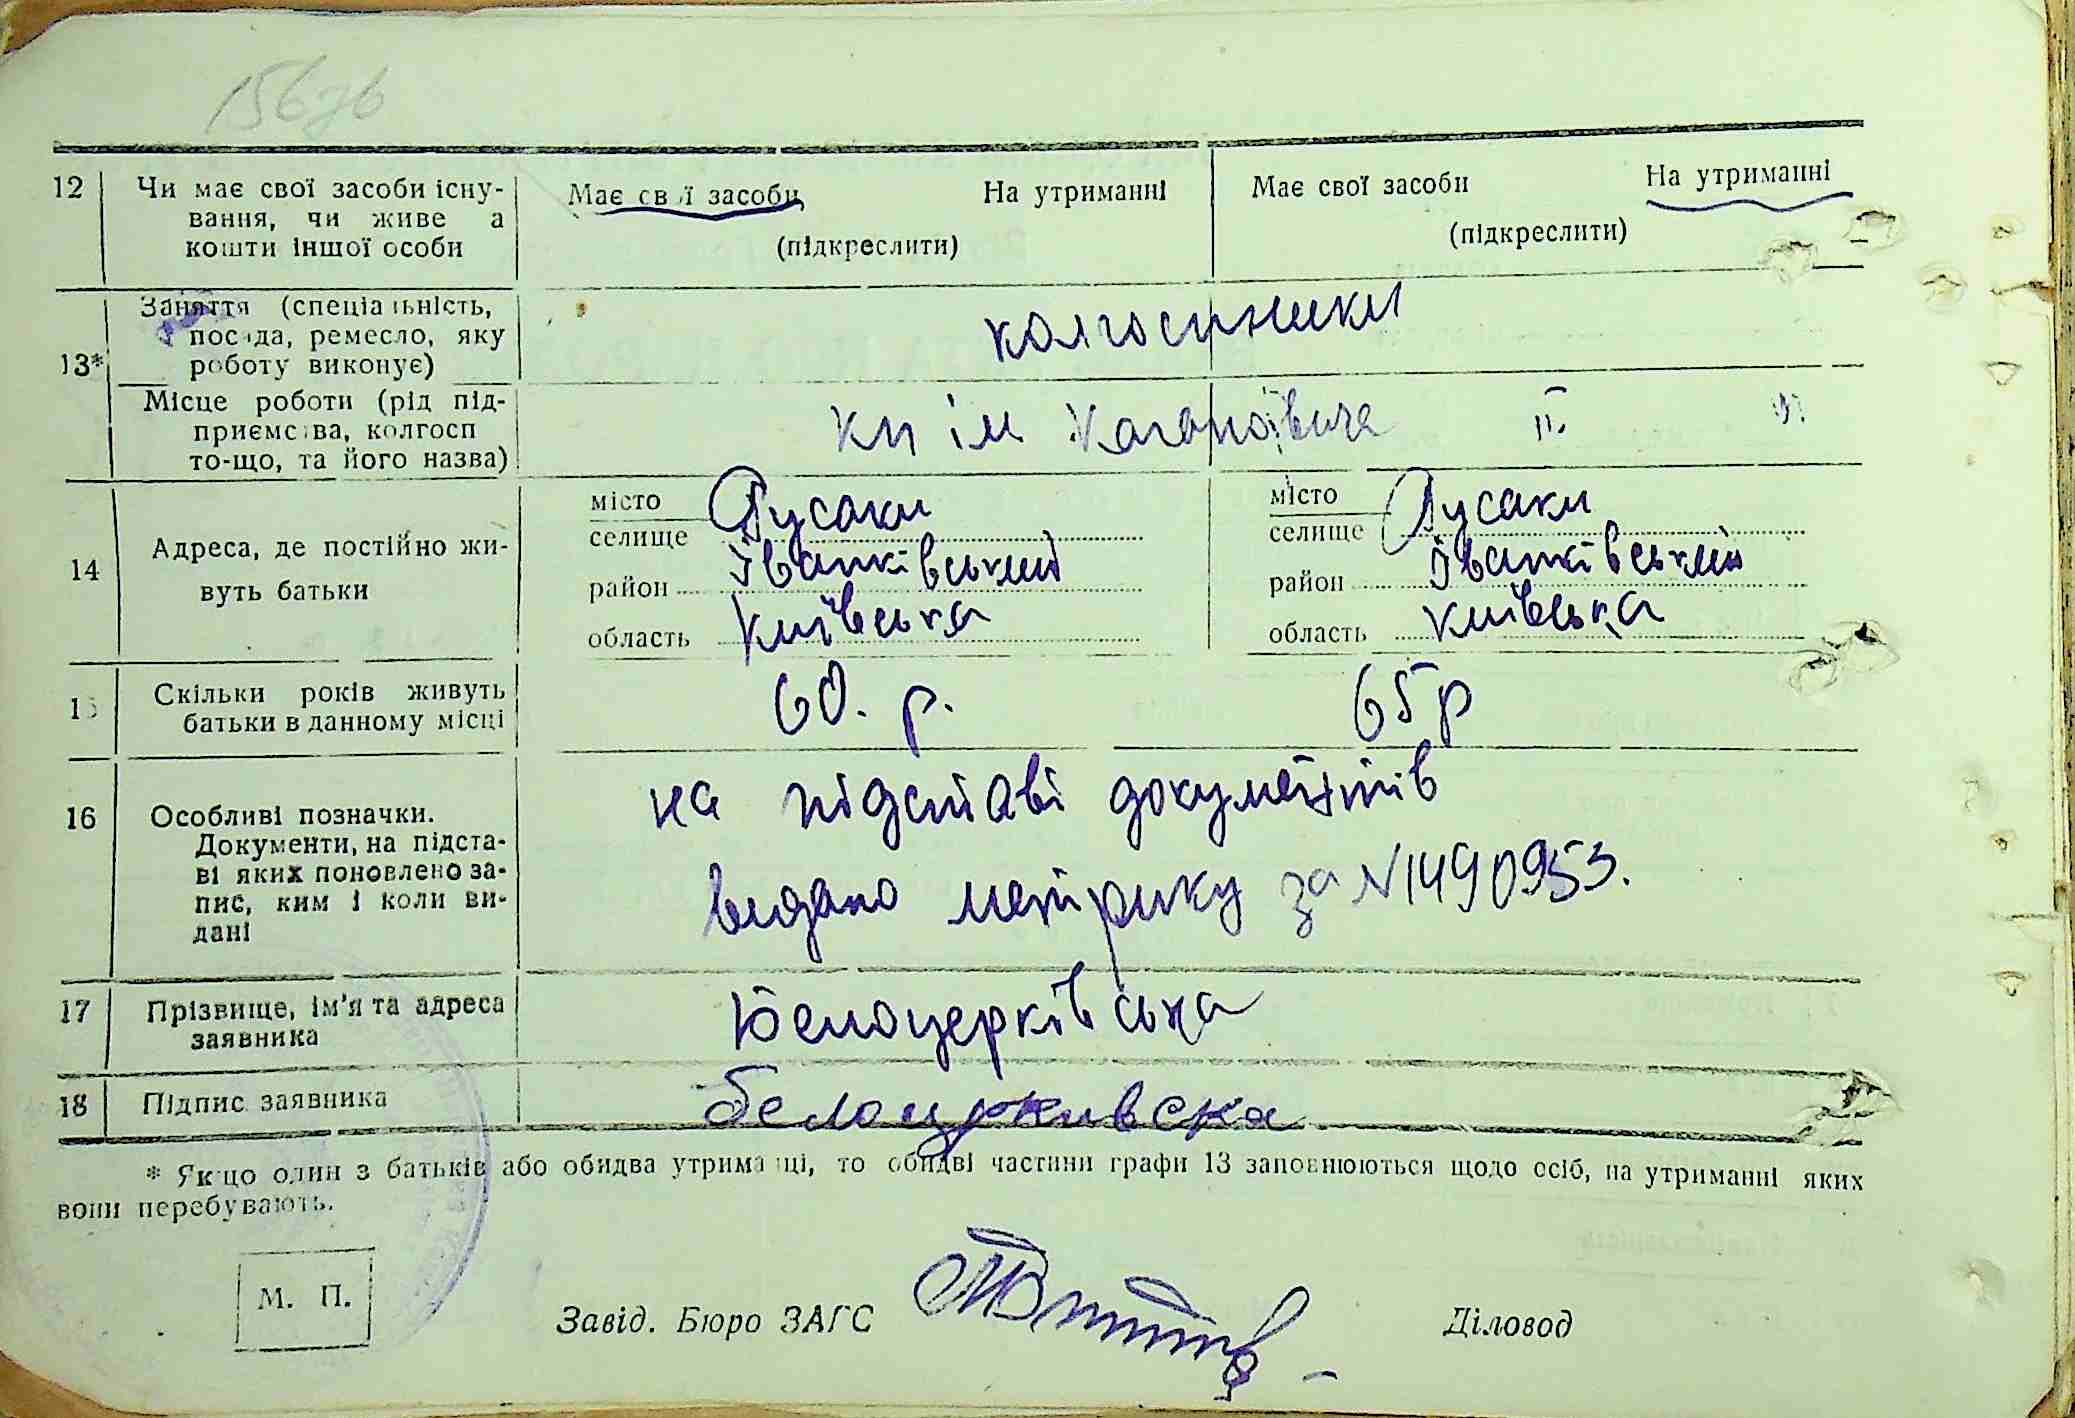 156зв
12 Чи має свої засоби існу- Має свої засоби На утриманні Має свої засоби На утриманні
вання, чи живе а (підкреслити) (підкреслити)
кошти іншої особи
13* Заняття (спеціальність, колгоспники
посада, ремесло, яку
роботу виконує)
Місце роботи (рід під- кп ім Кагановича
приємства, колгосп
то-що, та його назва)
14 Адреса, де постійно жи- місто Русаки місто Русаки
вуть батьки селище селище
район Іванківський район Іванківський
область Київська область Київська
15 Скільки років живуть 60. р. 65р
батьки в данному місці
16 Особливі позначки. на підставі документів
Документи, на підста- видано метрику за N1490953.
ві яких поновлено за-
пис, ким і коли ви-
дані
17 Прізвище, ім'я та адреса Белоцерківська
заявника
18 Підпис заявника белоцркивска
* Якщо один з батьків або обидва утриманці, то обидві частини графи 13 заповнюються щодо осіб, на утриманні яких
вони перебувають.
М. П.
Завід. Бюро ЗАГС Діловод